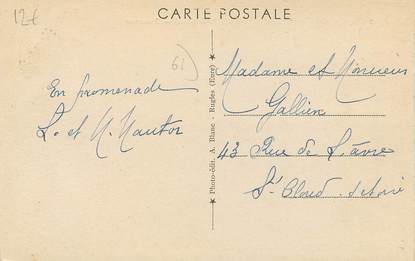 12€
CARTE POSTALE
61
En promenade
L. et M. Mautor
Photo-édit. A. Blanc - Rugles (Eure)
Madame et Monsieur
Gallien
43 Rue de
St Cloud